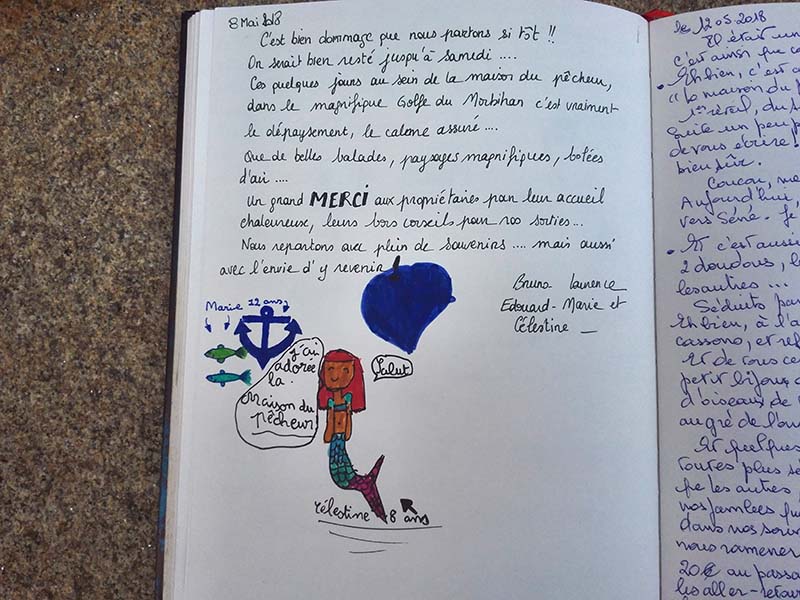 8 Mai 2018
C'est bien dommage que nous partons si tôt !!
On serait bien resté jusqu'à samedi ....
Ces quelques jours au sein de la maison du pêcheur,
dans le magnifique Golfe du Morbihan c'est vraiment
le dépaysement, le calme assuré ....
Que de belles balades, paysages magnifiques, bolées
d'air ....
Un grand MERCI aux propriétaires pour leur accueil
chaleureux, leurs bons conseils pour nos sorties...
Nous repartons avec plein de souvenirs .... mais aussi
avec l'envie d'y revenir !
Bruno Laurence
Edouard-Marie et
Célestine _
Marie 12 ans
j'ai
adorée
la
Maison du
Pêcheur
Salut
Célestine 8 ans
le 12 05 2018
Il était un
c'est ainsi que co
Eh bien, c'est a
"La maison du
1er réveil, du
Suite un peu p
de vous écrire !
bien sûr.
Coucou, me
Aujourd'hui,
vers Séné. Je
Et c'est aussi
2 doudous, l
les autres ...
Séduits pa
Eh bien, à l'a
cassono, et re
Et de tous ce
petit bijou
d'oiseaux de
au gré de l'
Et quelques
toutes plus s
que les autres
nos jambes
dans nos sou
nous ramener
20€ au passa
les aller-retou